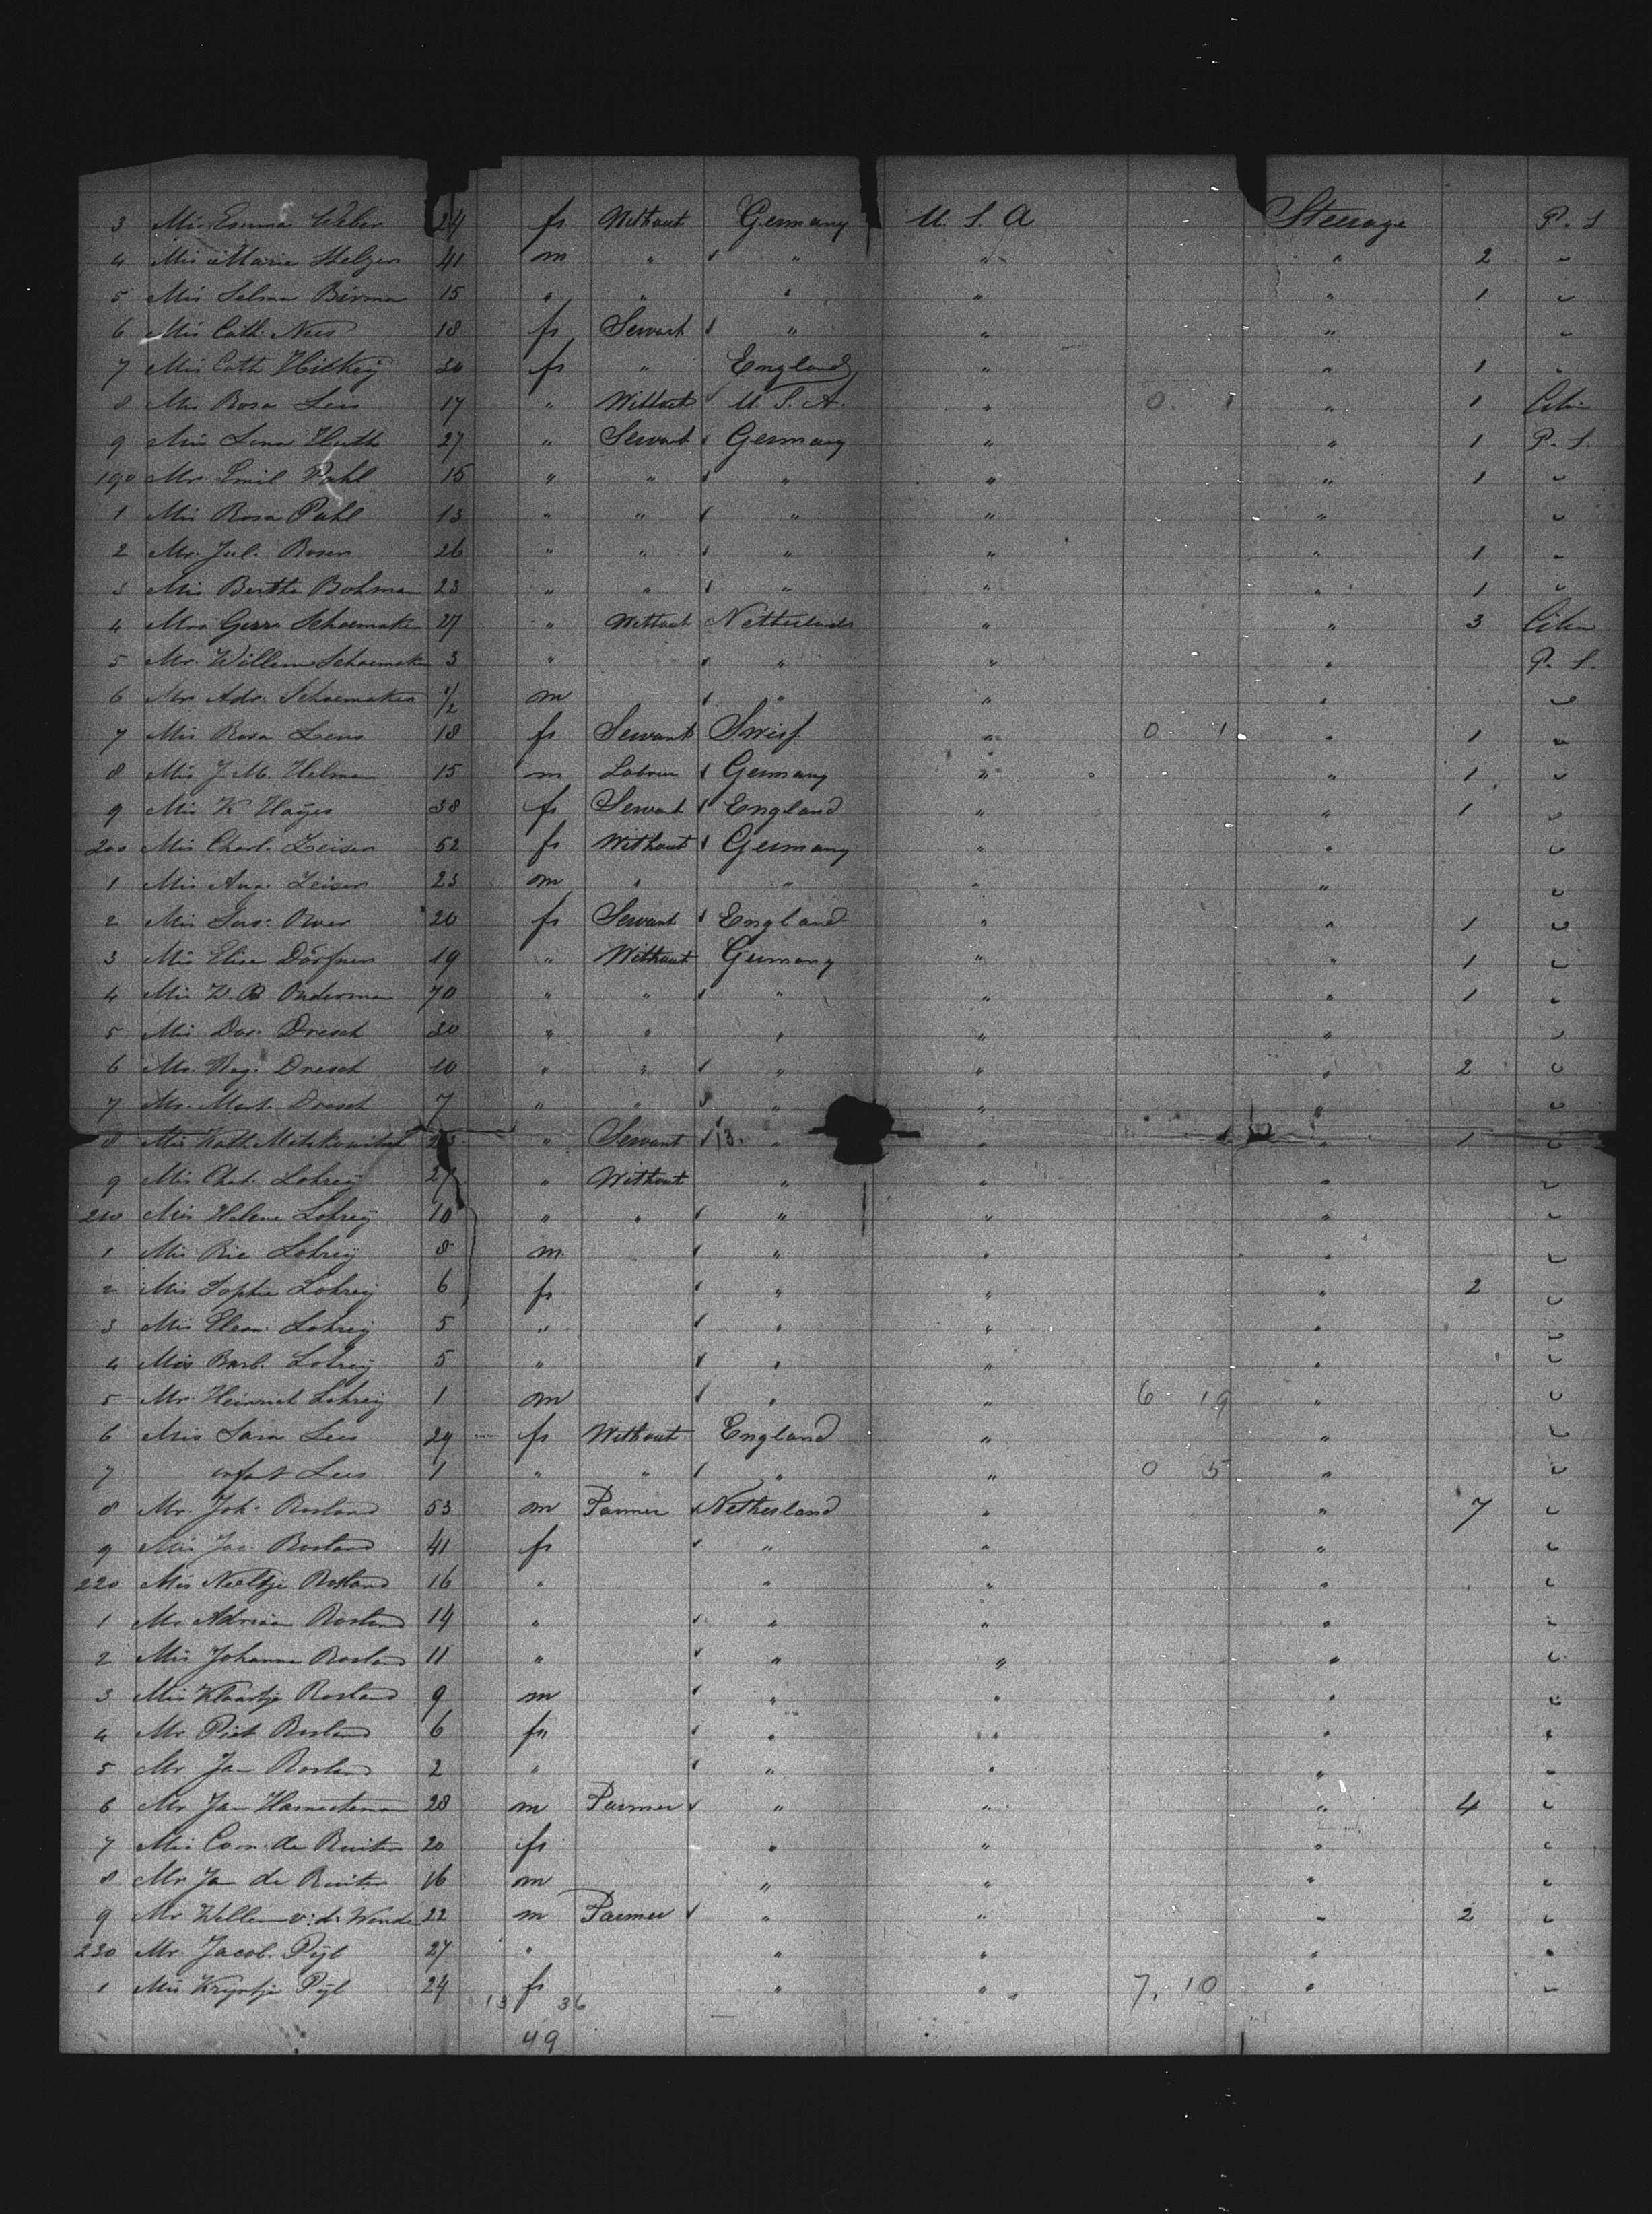 3 Mis Emma Weber 24 fs Without Germany U. S. A Steerage P. S
4 Mis Marie Stelzer 41 m " " " " 2 "
5 Mis Selma Birma 15 " " " " " 1 "
6 Mis Cath. Nees 18 fs Servant " " " "
7 Mis Cath Hickey 30 fs " England " " 1 "
8 Mis Rosa Leis 17 " Without U. S. A. " 0. 1 " 1 Citin
9 Mis Lena Huth 27 " Servant Germany " " 1 P. S.
190 Mr. Emil Pahl 15 " " " " " 1 "
1 Mis Rosa Pahl 13 " " " " " "
2 Mr. Jul. Rosen 26 " " " " " 1 "
3 Mis Bertha Bohma 23 " " " " " 1 "
4 Mrs Gerra Schoemaker 27 " Without Netherlands " " 3 Citin
5 Mr. Willem Schoemaker 3 " " " " P. S.
6 Mr Adr. Schoemaker 1/2 m " " " "
7 Mis Rosa Liens 18 fs Servant Swiss " 0 1 " 1 "
8 Mis J. M. Helma 15 m Labour Germany " " 1 "
9 Mis K Hayes 38 fs Servant England " " 1 "
200 Mis Charl. Zeiser 52 fs Without Germany " " "
1 Mis Aug. Zeiser 23 m " " " " "
2 Mis 20 fs Servant England " " 1 "
3 Mis Elise Dörfner 19 " Without Germany " " 1 "
4 Mis W. B Onderman 70 " " " " " 1 "
5 Mis Dor. Dresch 30 " " " " " "
6 Mr. Reg. Dresch 10 " " " " " 2 "
7 Mr. Mart. Dresch 7 " " " " " "
8 Mis Kath. " Servant 13. " " " 1 "
9 Mis Lohreÿ 27 " Without " " " "
210 Mis Helene Lohreÿ 10 " " " " " "
1 Mis Ric Lohreÿ 8 m " " " "
2 Mis Sophie Lohreÿ 6 fs " " " 2 "
3 Mis Elean. Lohreÿ 5 " " " " "
4 Mis Barb. Lohreÿ 5 " " " " "
5 Mr. Heinrich Lohreÿ 1 m " " 6 19 " "
6 Mis Sara Lees 29 fs Without England " " "
7 infant Lees 1 " " " " 0 5 " "
8 Mr. Joh. Rosland 53 m Farmer Netherland " " 7 "
9 Mis Jac. Rosland 41 fs " " " "
220 Mis Neeltje Rosland 16 " " " " "
1 Mr Adriaan Rosland 14 " " " " "
2 Mis Johanna Rosland 11 " " " " "
3 Mis Klaartje Rosland 9 m " " " "
4 Mr Piet Rosland 6 fs " " " "
5 Mr. Jan Rosland 2 " " " " "
6 Mr Jan 28 m Farmer " " " 4 "
7 Mis Corn. de Ruiter 20 fs " " " "
8 Mr Jan de Ruiter 16 m " " " "
9 Mr Willem v. d. Wende 22 m Farmer " " " 2 "
230 Mr. Jacob. Pijl 27 " " " " "
1 Mis Krijntje Pijl 24 fs " " 7. 10 " "
13 36
49